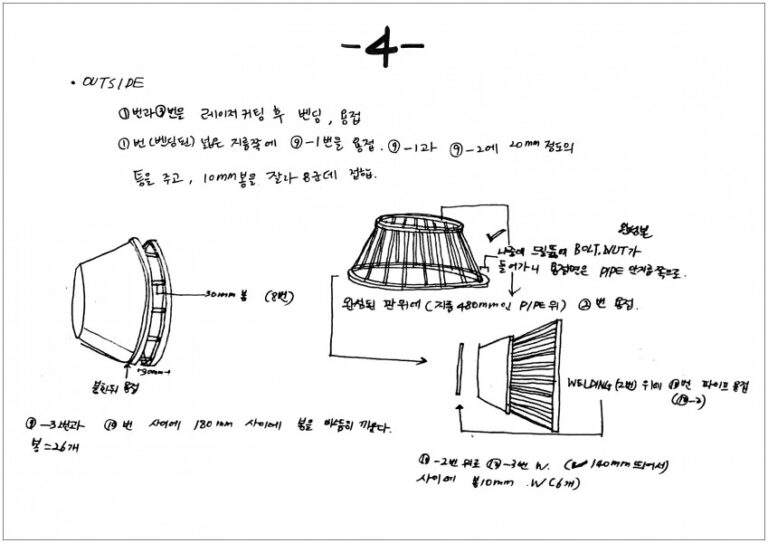 -4-
• OUTSIDE
①번과 ③번은 레이저커팅 후 벤딩, 용접
①번(벤딩된) 넓은 지름쪽에 ⑨-1번을 용접. ⑨-1과 ⑨-2에 20mm 정도의
틈을 주고, 10mm봉을 잘라 8군데 접합.
완성본
나중에 드릴뚫어 BOLT, NUT가
들어가니 용접면은 PIPE 안지름쪽으로.
30mm 봉 (8번)
완성된 판위에 (지름 480mm인 PIPE위) ②번 용접.
30mm
용접
WELDING (2번) 위에 번 파이프 용접
-3번과 번 사이에 180mm 사이에 봉을 끼운다.
봉=26개
-2번 위로 -3번 W. (140mm 띄어서)
사이에 봉10mm .W(6개)